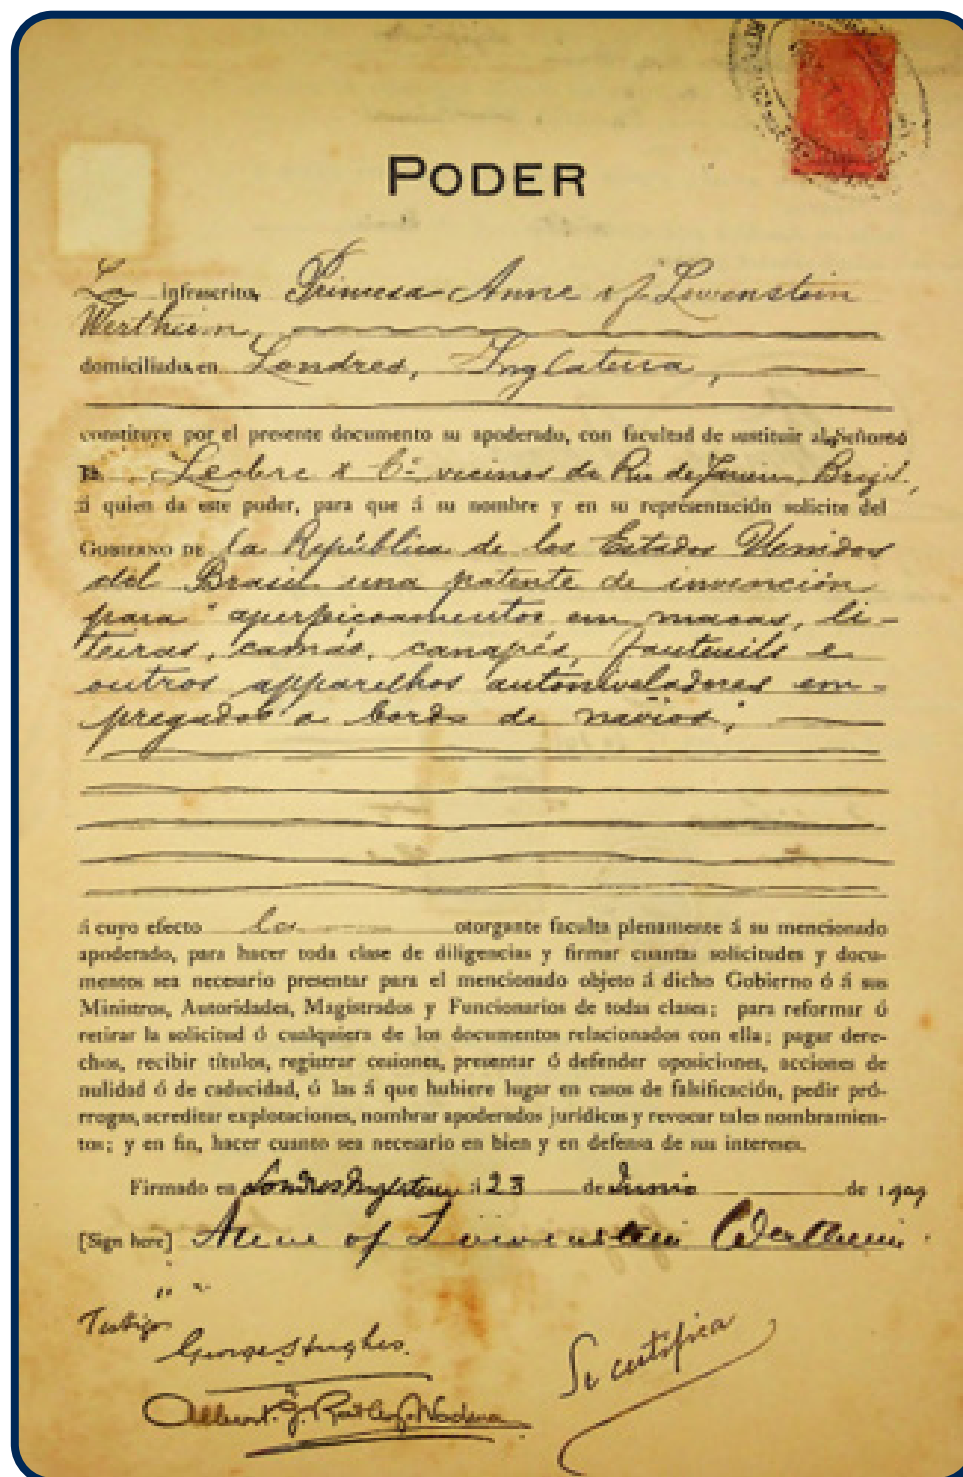 PODER
La infrascrito, Princesa Anne of Löwenstein
Wertheim,
domiciliada en Londres, Inglaterra,
constituye por el presente documento su apoderado, con facultad de sustituir al Señores
Leclerc & Cº vecinos de Rio de Janeiro, Brazil,
á quien da este poder, para que á su nombre y en su representación solicite del
GOBIERNO DE la República de los Estados Unidos
del Brasil una patente de invención
para "aperfeiçoamentos em macas, li-
teiras, camas, canapés, fauteuils e
outros apparelhos autoniveladores em-
pregados a bordo de navios;
á cuyo efecto la otorgante faculta plenamente á su mencionado
apoderado, para hacer toda clase de diligencias y firmar cuantas solicitudes y docu-
mentos sea necesario presentar para el mencionado objeto á dicho Gobierno ó á sus
Ministros, Autoridades, Magistrados y Funcionarios de todas clases; para reformar ó
retirar la solicitud ó cualquiera de los documentos relacionados con ella; pagar dere-
chos, recibir títulos, registrar cesiones, presentar ó defender oposiciones, acciones de
nulidad ó de caducidad, ó las á que hubiere lugar en casos de falsificación, pedir pró-
rrogas, acreditar explotaciones, nombrar apoderados jurídicos y revocar tales nombramien-
tos; y en fin, hacer cuanto sea necesario en bien y en defensa de sus intereses.
Firmado en Londres Inglaterra á 23 de Junio de 1909
[Sign here] Anne of Löwenstein Wertheim.
Testigo
George Hughes.
Albert. J.
Se certifica